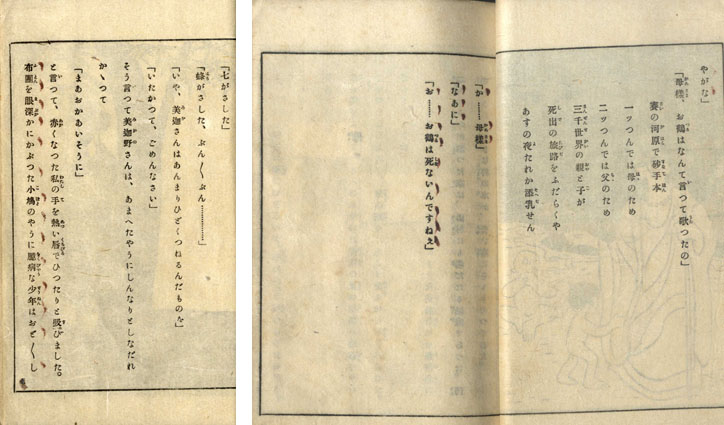 やがな」
「母様、お鶴はなんて言つて歌つたの」
賽の河原で砂手本
一ツつんでは母のため
二ツつんでは父のため
三千世界の親と子が
死出の旅路をふだらくや
あすの夜たれか添乳せん
「か……母様」
「なあに」
「お……お鶴は死ないんですねえ」
「七がさした」
「蜂がさした、ぶん〱ぶん…………」
「いや、美迦さんはあんまりひどくつねるんだものを」
「いたかつて、ごめんなさい」
そう言つて美迦野さんは、あまへたやうにしんなりとしなだれ
かゝつて
「まあおかあいそうに」
と言つて、赤くなつた私の手を熱い唇でひつたりと吸ひました。
布團を眼深かにかぶつた小鳩のやうに臆病な少年はおど〱し